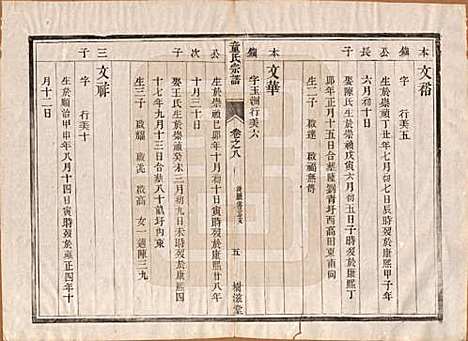 本 文裕
鑛 字 行美五
公 生於崇禎丁丑年七月初七日寅時歿於康熙甲子年
長 六月初十日
子 娶陳氏生於崇禎戊寅六月初五日子時歿於康熙丁
卯年正月十五日合葬劉青圩西高田東甫向
生二子 啟達 啟福無傳
本 文華
鑛 字玉洲行美六
公 生於崇禎己卯年十月初十日寅時歿於康熙廿八年
次 十月三十日
子 娶王氏生於崇禎癸未三月初九日未時歿於康熙四
十七年九月十三日合葬八十畝圩內東
生三子 啟福 啟高 女一適陳三九
童氏宗譜
卷之八
五
樹滋堂
三 文祥
子 字 行美十
生於順治甲申年八月十四日寅時歿於雍正四年十
月十二日